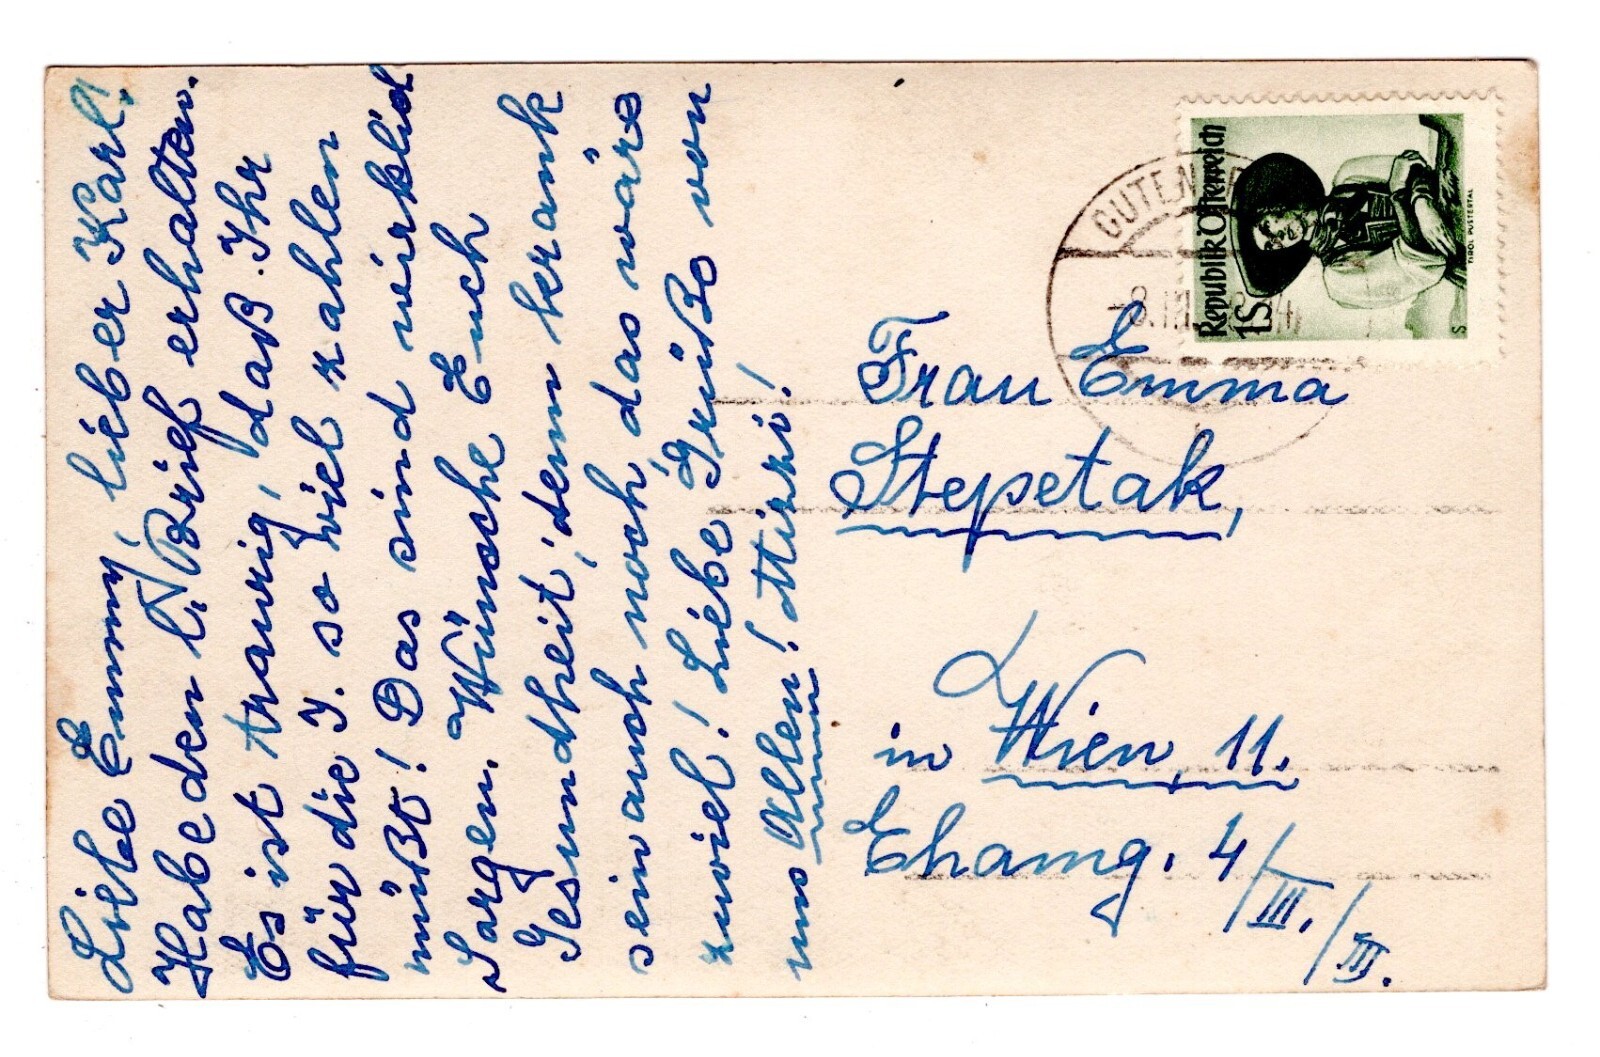 Liebe Emmy, lieber Karl!
Habe den l. Brief erhalten.
Es ist traurig, daß Ihr
für die J. so viel zahlen
müßt! Das sind wirklich
Sorgen. Wünsche Euch
Gesundheit, denn krank
sein auch noch, das wäre
zuviel! Liebe Grüße von
uns Allen! Mizzi!
Republik Österreich
1S
TIROL PUSTERTAL
S
GUTEN
-8.III
Frau Emma
Stepetak,
in Wien, 11.
Ehamg. 4/III./II.